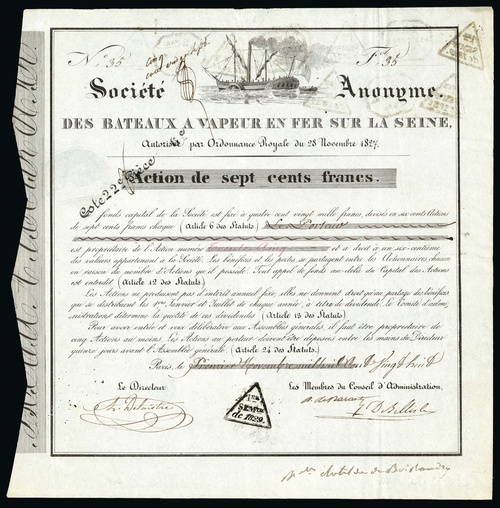 N° 35
F° 35
Société Anonyme.
DES BATEAUX A VAPEUR EN FER SUR LA SEINE,
Autorisée par Ordonnance Royale du 28 Novembre 1827.
Action de sept cents francs.
Cote 22
fonds capital de la Société est fixé à quatre cent vingt mille francs, divisés en six cents Actions
de sept cents francs chaque (Article 6 des Statuts) Le Porteur
est propriétaire de l'Action numéro trente cinq et a droit à un six-centième
des valeurs appartenant à la Société. Les bénéfices et les pertes se partagent entre les Actionnaires chacun
en raison du nombre d'Actions qu'il possède. Tout appel de fonds au-delà du Capital des Actions
est interdit (Article 12 des Statuts)
Les Actions ne produisent pas d'intérêt annuel fixe, elles ne donnent droit qu'au partage des bénéfices
qui se distribuent les 1ers Janvier et Juillet de chaque année à titre de dividende. Le Comité d'admi-
nistration détermine la quotité de ces dividendes (Article 13 des Statuts)
Pour avoir entrée et voix délibérative aux Assemblées générales, il faut être propriétaire de
cinq Actions au moins. Les Actions au porteur doivent être déposées entre les mains du Directeur
quinze jours avant l'Assemblée générale. (Article 24 des Statuts)
Paris, le premier Novembre mil huit cent vingt huit
Le Directeur
Les Membres du Conseil d'Administration,
1er
SEMtre
de 1829.